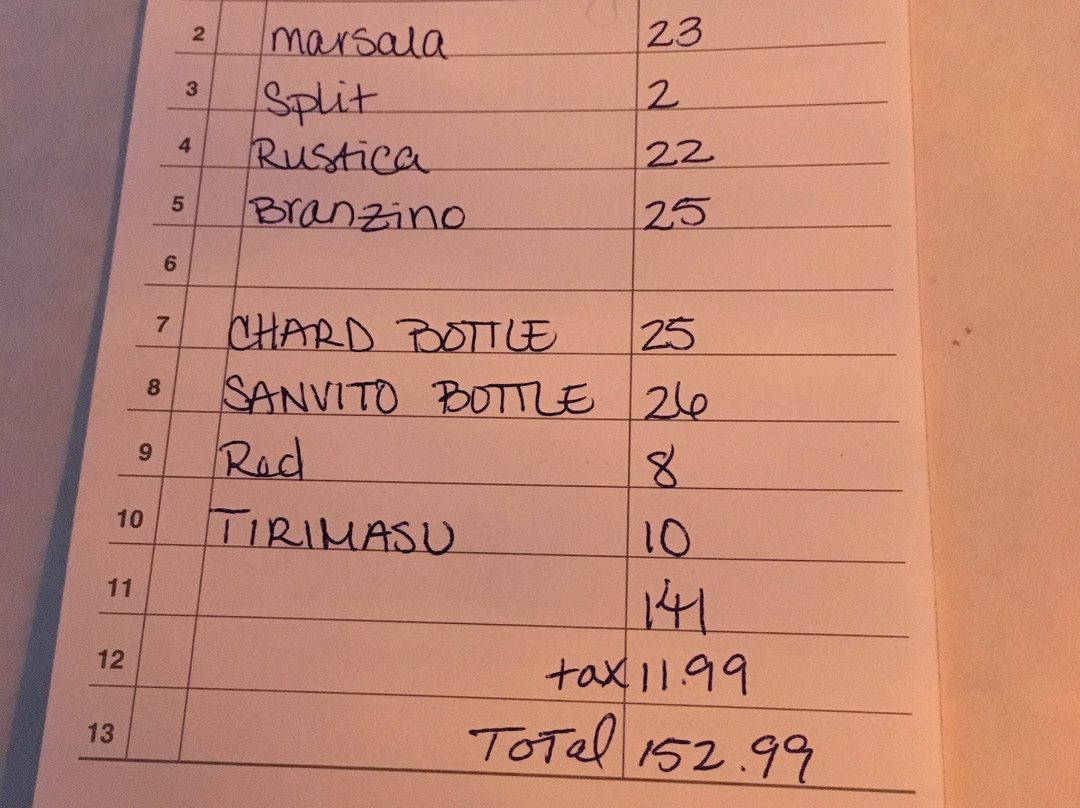 2 marsala 23
3 Split 2
4 Rustica 22
5 Branzino 25
6
7 CHARD BOTTLE 25
8 SANVITO BOTTLE 26
9 Red 8
10 TIRIMASU 10
11 141
12 tax 11.99
13 Total 152.99